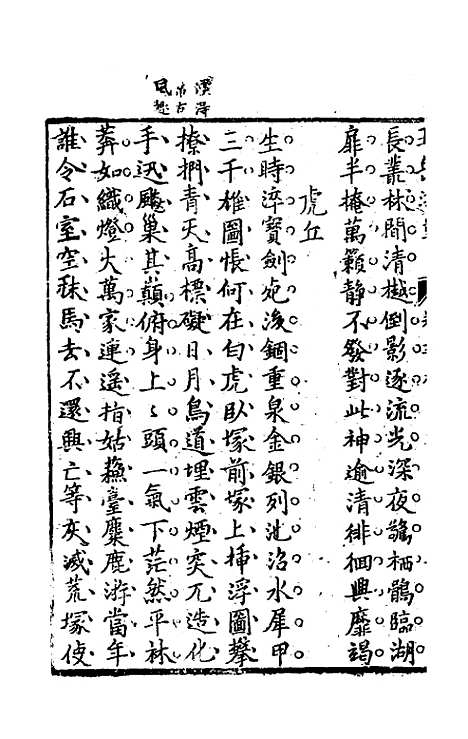 長叢林間清樾倒影逐流光深夜驚栖鶻臨湖
扉半掩萬籟静不發對此神逾清徘徊興靡竭
虎丘
生時淬寶劍死後錮重泉金銀列沈沿水犀甲
三千椎圖悵何在白虎臥塚前塚上揷浮圖攀
撩捫青天高標礙日月鳥道埋雲煙突兀造化
手迅飈巢其顛俯身上上頭一氣下茫然平林
莽如織燈火萬家連遥指姑蘓臺麋鹿游當年
誰令石室空秣馬去不還興亡等灰滅荒塚使